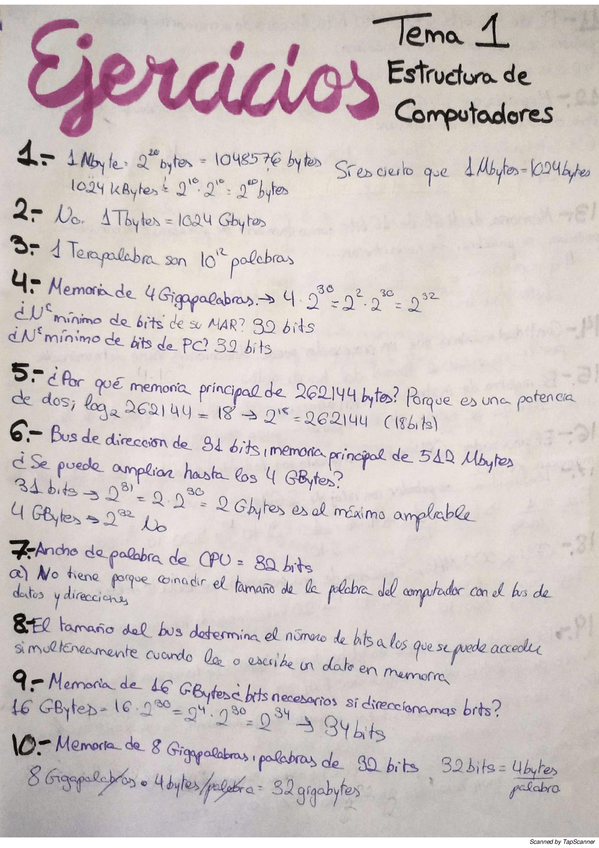 Ejercicios
Tema 1
Estructura de
Computadores
1.- 1 Mbyte = 2^20 bytes = 1048576 bytes Si es cierto que 1 Mbytes = 1024 bytes
1024 kBytes = 2^10 · 2^10 = 2^20 bytes
2.- No. 1 Tbytes = 1024 Gbytes
3.- 1 Terapalabra son 10^12 palabras
4.- Memoria de 4 Gigapalabras. → 4 · 2^30 = 2^2 · 2^30 = 2^32
¿Nº mínimo de bits de su MAR? 32 bits
¿Nº mínimo de bits de PC? 32 bits
5.- ¿Por qué memoria principal de 262144 bytes? Porque es una potencia
de dos; log2 262144 = 18 → 2^18 = 262144 (18 bits)
6.- Bus de dirección de 31 bits, memoria principal de 512 Mbytes
¿Se puede ampliar hasta los 4 GBytes?
31 bits → 2^31 = 2 · 2^30 = 2 Gbytes es el máximo ampliable
4 GBytes → 2^32 No
7.- Ancho de palabra de CPU = 32 bits
a) No tiene porque coincidir el tamaño de la palabra del computador con el bus de
datos y direcciones
8.- El tamaño del bus determina el número de bits a los que se puede acceder
simultáneamente cuando lee o escribe un dato en memoria
9.- Memoria de 16 GBytes ¿bits necesarios si direccionamos bits?
16 GBytes = 16 · 2^30 = 2^4 · 2^30 = 2^34 → 34 bits
10.- Memoria de 8 Gigapalabras, palabras de 32 bits, 32 bits = 4 bytes/palabra
8 Gigapalabras · 4 bytes/palabra = 32 gigabytes
Scanned by TapScanner